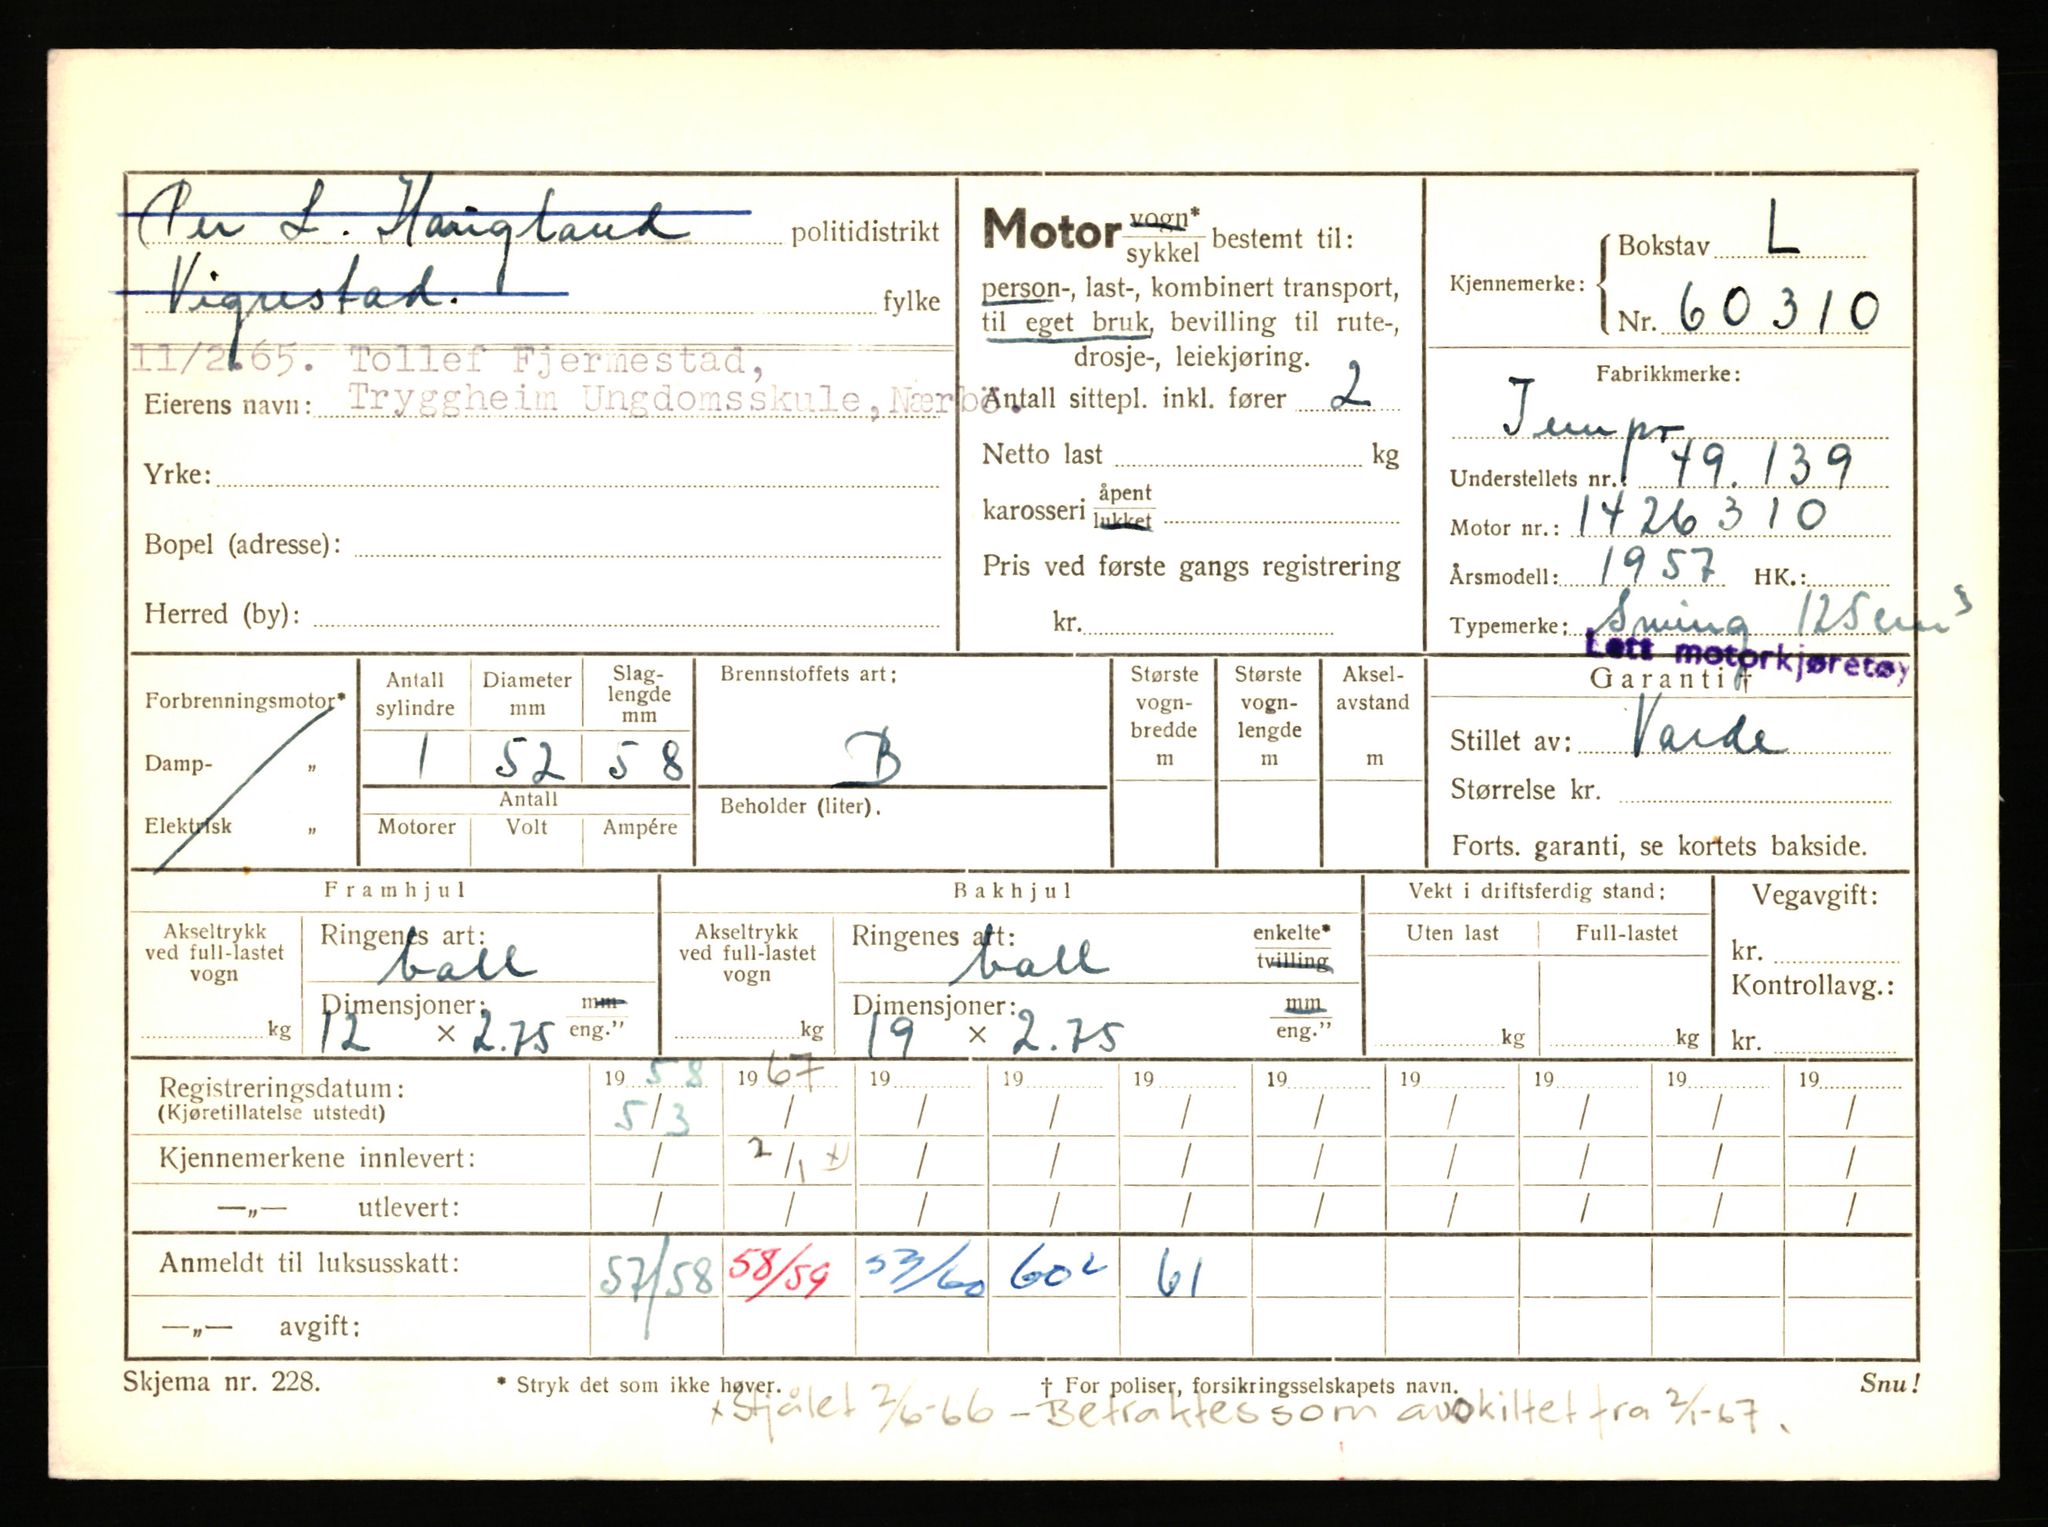 Per L. Haugland politidistrikt
Vigrestad. fylke
11/2.65. Tollef Fjermestad,
Eierens navn: Tryggheim Ungdomsskule, Nærbö.
Yrke:
Bopel (adresse):
Herred (by):
Motor vogn* sykkel bestemt til:
person-, last-, kombinert transport,
til eget bruk, bevilling til rute-,
drosje-, leiekjøring.
Antall sittepl. inkl. fører 2
Netto last kg
karosseri åpent lukket
Pris ved første gangs registrering
kr.
Kjennemerke: Bokstav L
Nr. 60310
Fabrikkmerke:
Temp
Understellets nr.: 49.139
Motor nr.: 1426310
Årsmodell: 1957 HK.:
Typemerke: Swing 125 cm³
Lett motorkjøretøy
Forbrenningsmotor*
Damp- „
Elektrisk „
Antall sylindre Diameter mm Slag-lengde mm
1 52 58
Antall
Motorer Volt Ampére
Brennstoffets art:
B
Beholder (liter).
Største vogn-bredde m
Største vogn-lengde m
Aksel-avstand m
Garanti †
Stillet av: Varde
Størrelse kr.
Forts. garanti, se kortets bakside.
Framhjul
Akseltrykk ved full-lastet vogn
kg
Ringenes art:
ball
Dimensjoner: mm eng."
12 × 2.75
Bakhjul
Akseltrykk ved full-lastet vogn
kg
Ringenes art: enkelte* tvilling
ball
Dimensjoner: mm eng."
19 × 2.75
Vekt i driftsferdig stand:
Uten last Full-lastet
kg kg
Vegavgift:
kr.
Kontrollavg.:
kr.
Registreringsdatum: 19 58 19 67 19 19 19 19 19 19 19 19
(Kjøretillatelse utstedt) 5/3 / / / / / / / / /
Kjennemerkene innlevert: / 2/1 x) / / / / / / / /
—„— utlevert: / / / / / / / / / /
Anmeldt til luksusskatt: 57/58 58/59 59/60 60² 61
—„— avgift:
Skjema nr. 228. * Stryk det som ikke høver. † For poliser, forsikringsselskapets navn. Snu!
x Stjålet 2/6-66 – Betraktes som avskiltet fra 2/1-67.